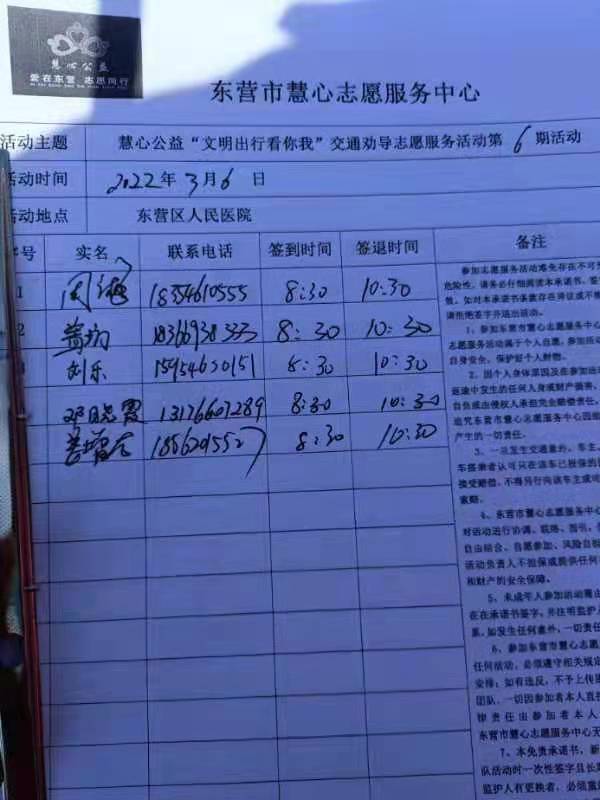 慧心公益
爱在东营 志愿同行
东营市慧心志愿服务中心
活动主题 慧心公益“文明出行看你我”交通劝导志愿服务活动第 6 期活动
活动时间 2022年3月6日
活动地点 东营区人民医院
序号 实名 联系电话 签到时间 签退时间 备注
1 周 18354610555 8:30 10:30
2 18366938333 8:30 10:30
刘乐 15954630151 8:30 10:30
邓晓霞 13176607289 8:30 10:30
8:30 10:30
参加志愿服务活动难免存在不可
危险性,请务必仔细阅读本承诺书,签
效,如对本承诺书条款存在异议或不
请拒绝签字并退出活动。
1、参加东营市慧心志愿服务中心
志愿服务活动属于个人自愿,参加活动
自身安全,保护好个人财物。
2、因个人身体原因及在参加活
返途中发生的任何人身或财产损害,
自负或由侵权人承担完全赔偿责任,
追究东营市慧心志愿服务中心因组
产生的一切责任。
3、一旦发生交通意外,车主、
车搭乘者认可只在该车已投保的
接受赔偿,不得另行向该车主或
索赔。
4、东营市慧心志愿服务中心
对活动进行协调、联络、图书,
自由结合、自愿参加、风险自担
活动负责人不担保或提供任何
和财产的安全保障。
5、未成年人参加活动需由
在在承诺书签字,并注明监护人
系,如发生任何意外,一切责任
6、参加东营市慧心志愿服
任何活动,必须遵守相关规定
安排;如有违反,不予上传
团队,一切因参加者本人直接
律责任由参加者本人
东营市慧心志愿服务中心无
7、本免责承诺书,新
队活动时一次性签字且长期
监护人有更换者,必须重